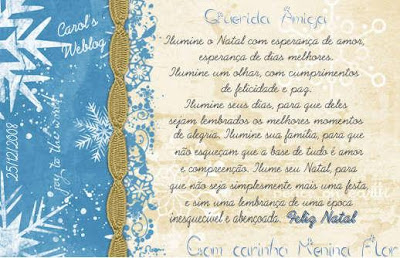 Carol's
Weblog
Joy to the World
25/12/2008
Querida Âmiga
Ilumine o Natal com esperança de amor,
esperança de dias melhores.
Ilumine um olhar, com cumprimentos
de felicidade e paz.
Ilumine seus dias, para que deles
sejam lembrados os melhores momentos
de alegria. Ilumine sua família, para que
não esqueçam que a base de tudo é amor
e compreenção. Ilume seu Natal, para
que não seja simplesmente mais uma festa,
e sim uma lembrança de uma época
inesquecível e abençoada. Feliz Natal
Com carinho Menina Flor